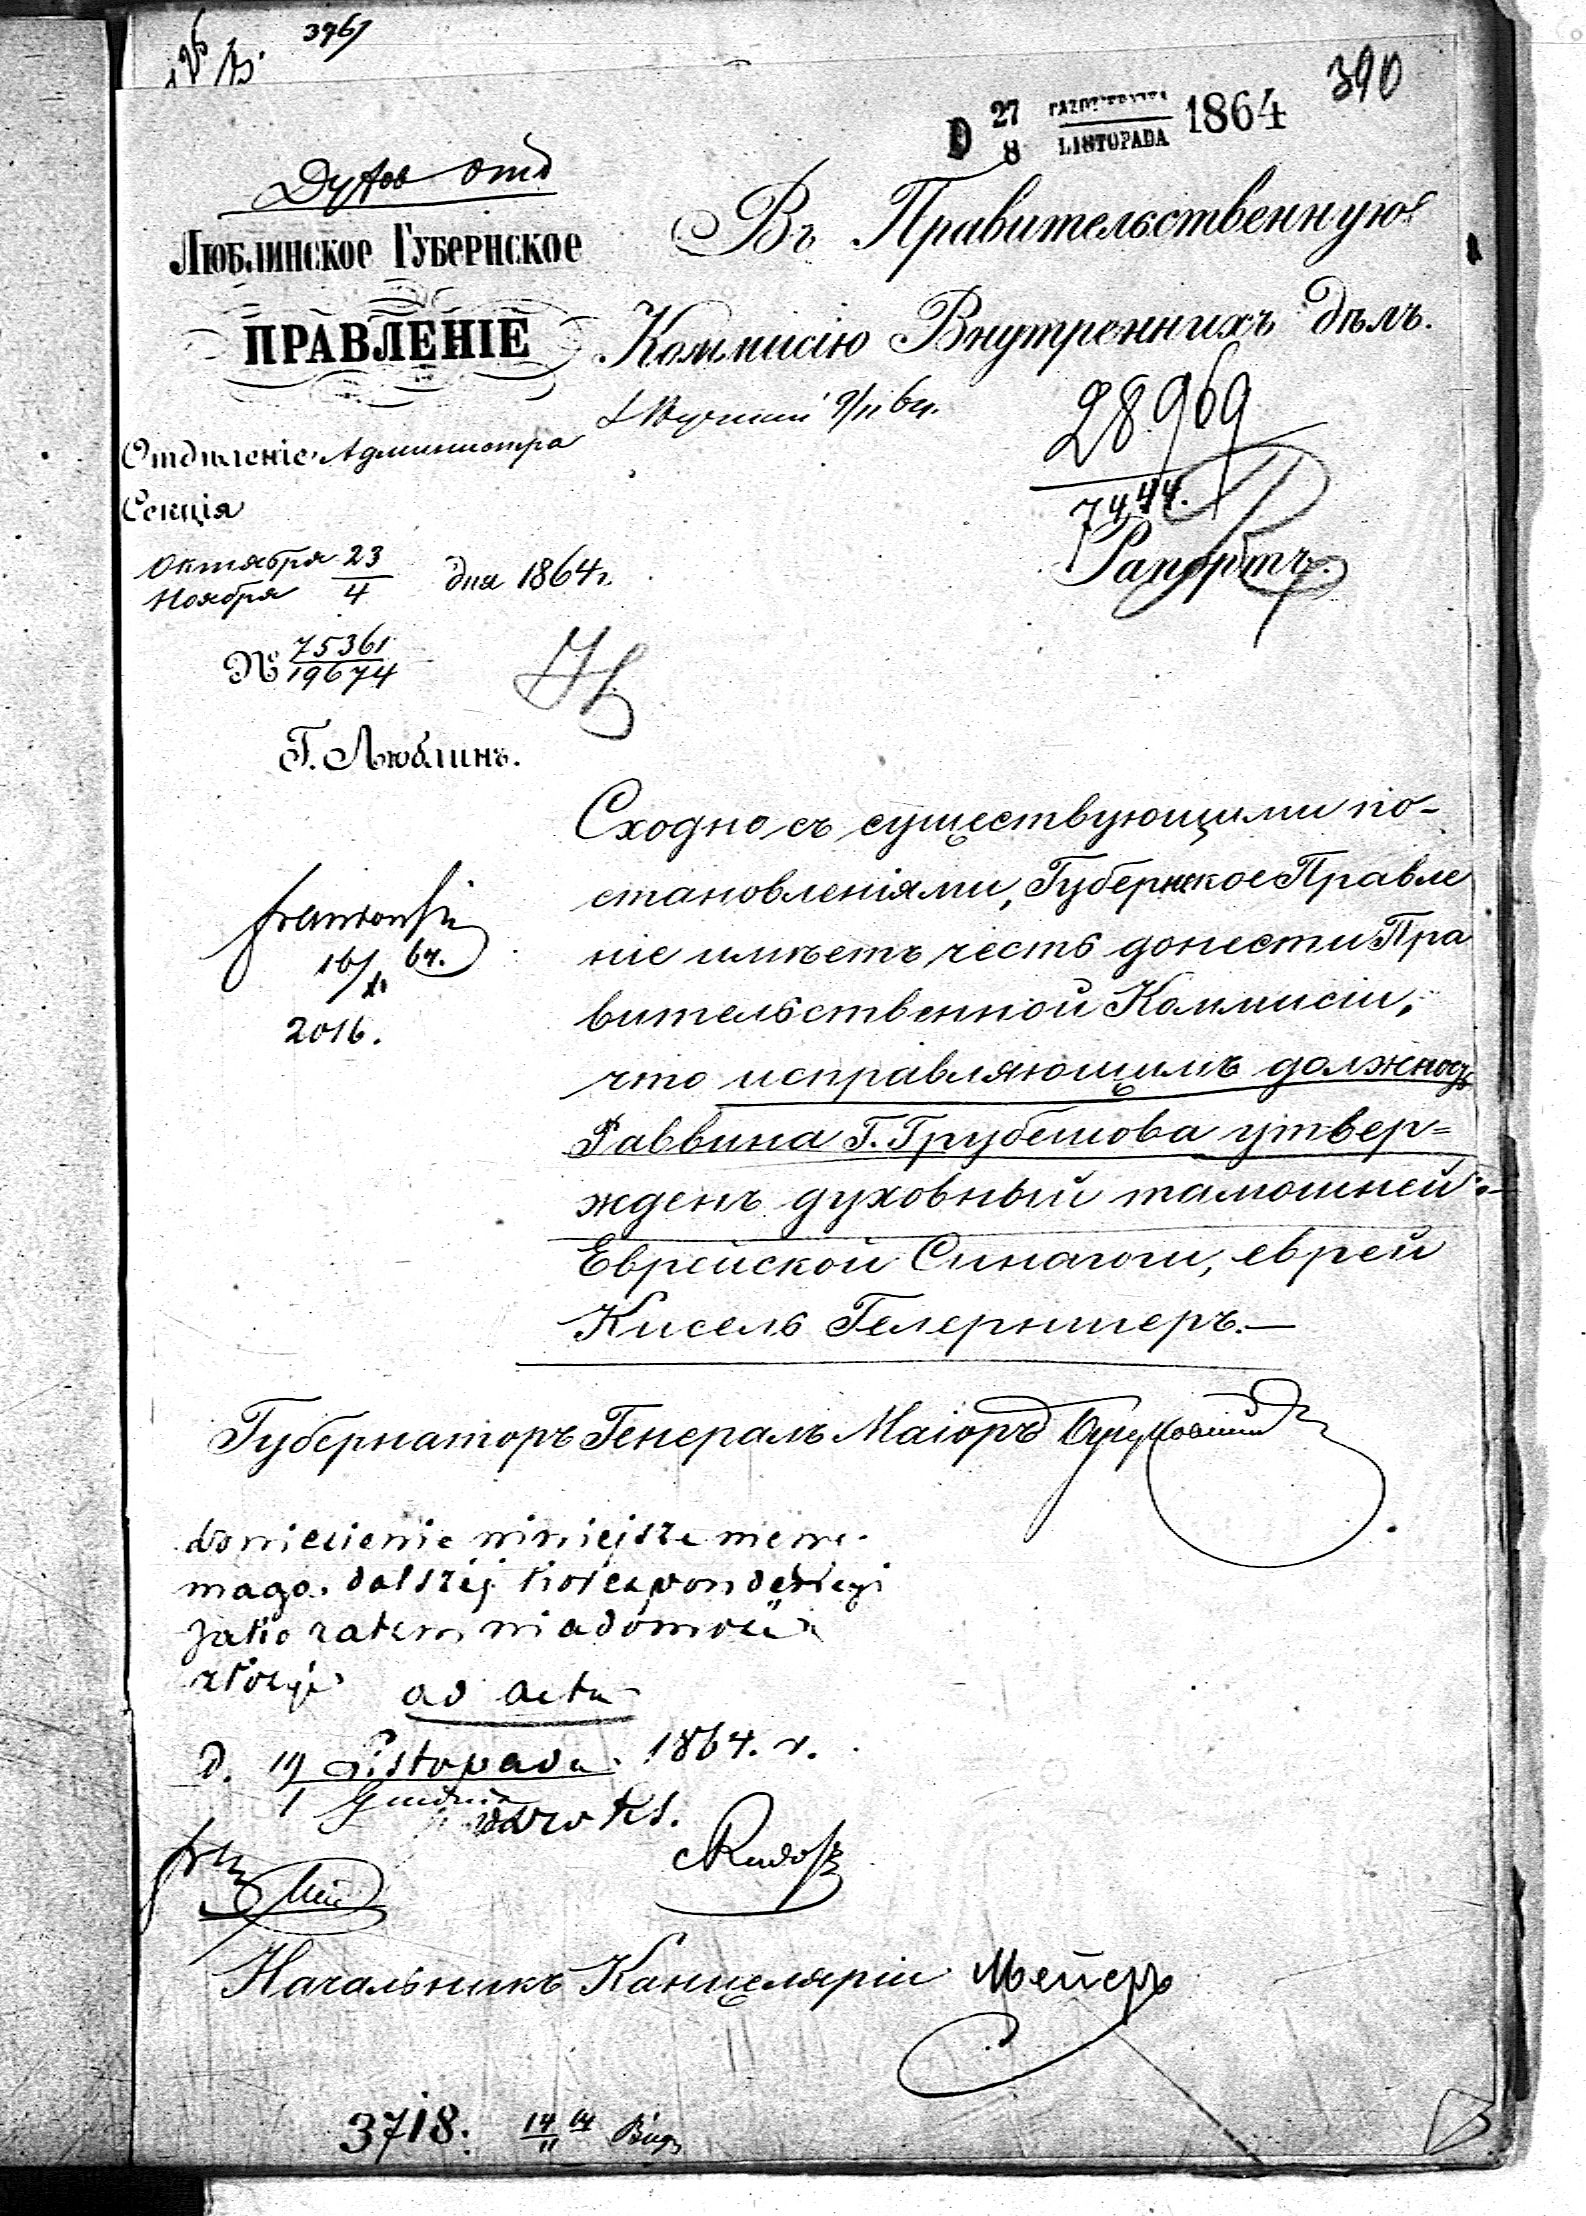 3961
390
D 27/8 PAZDZIERNIKA/LISTOPADA 1864
Духов отд
ЛЮБЛИНСКОЕ ГУБЕРНСКОЕ
ПРАВЛЕНІЕ
Въ Правительственную
Коммисію Внутреннихъ дѣлъ.
9/11 64.
28969
7444.
Отдѣленіе Администра
Секція
Рапортъ.
Октября 23
Ноября 4 дня 1864 г.
№ 75361
19674
Г. Люблинъ.
Сходно съ существующими по-
становленіями, Губернское Правле
ніе имѣетъ честь донести Пра
вительственной Коммисіи,
что исправляющимъ должность
Раввина Г. Грубешова утвер=
жденъ духовный тамошней
Еврейской Синагоги, еврей
Кисель Гелерштеръ.—
16/XI 64.
2016.
Губернаторъ Генералъ Маіоръ
doniesienie niniejsze nie wy-
maga dalszej korespondencyi
jako zatem wiadomość
złożyć ad acta
D. 19 Listopada 1864. r.
1 Grudnia
Начальникъ Канцеляріи Мейеръ
3718. 14/11 64